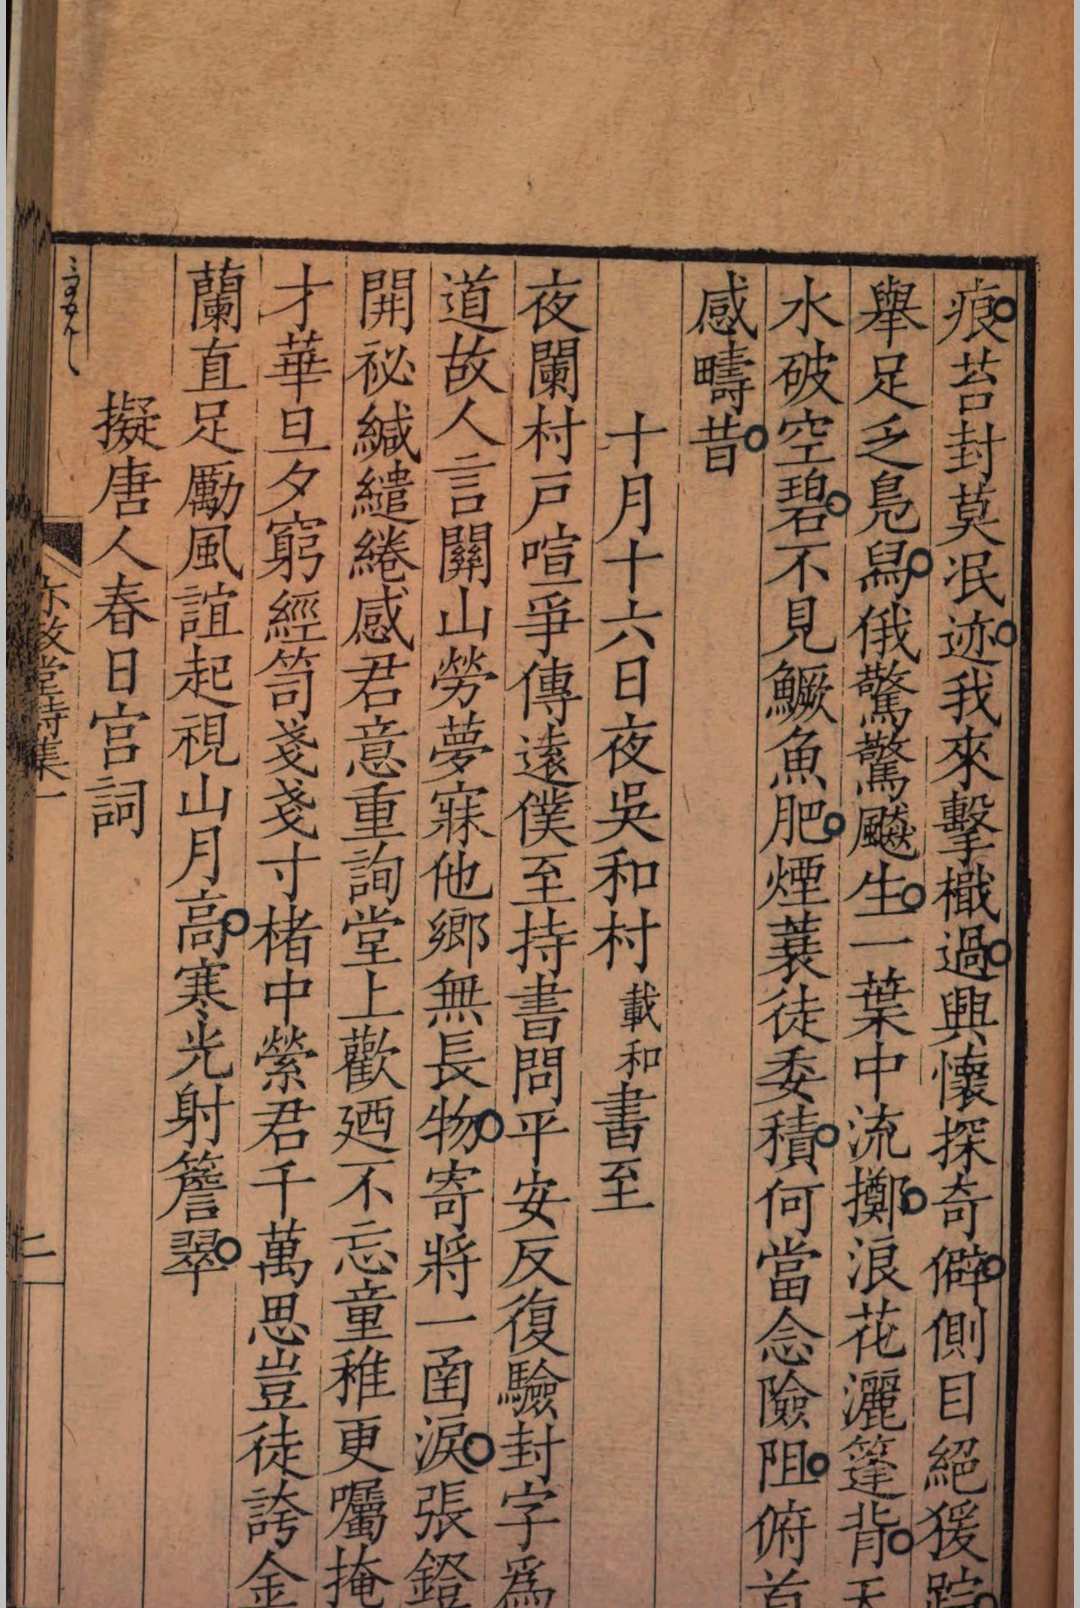 痕苔封莫泯迹我來擊檝過興懷探奇僻側目絕猨踪
舉足乏鳧舄俄驚驚飈生一葉中流擲浪花灑篷背天
水破空碧不見鱖魚肥煙蓑徒委積何當念險阻俯首
感疇昔
十月十六日夜吳和村載和書至
夜闌村戸喧爭傳遠僕至持書問平安反復驗封字爲
道故人言關山勞夢寐他鄉無長物寄將一函淚張鐙
開祕緘繾綣感君意重詢堂上歡廼不忘童稚更囑掩
才華旦夕窮經笥戔戔寸楮中縈君千萬思豈徒誇金
蘭直足勵風誼起視山月高寒光射簷翠
擬唐人春日宮詞
亦政堂詩集一
二